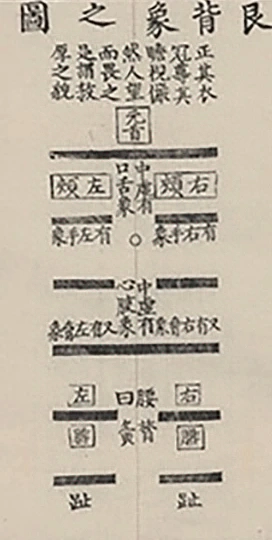 艮背象之圖
正其衣
冠尊其
瞻視儼
然人望
而畏之
是謂敦
厚之貌
元首
中虛有
口舌象
右頰
左頰
有右手象
有左手象
中虛有
心腹象
又有右脅象
又有左脅象
右
腰背
曰夤
左
趾
趾